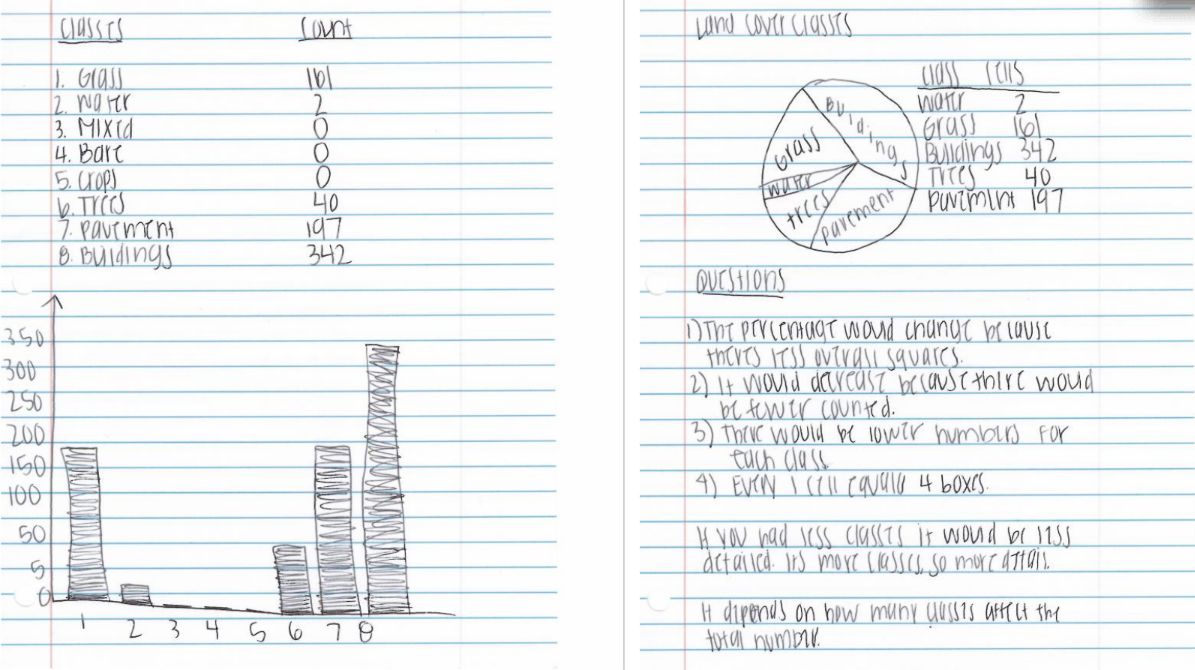 Classes Count
1. Grass 161
2. Water 2
3. Mixed 0
4. Bare 0
5. Crops 0
6. Trees 40
7. Pavement 197
8. Buildings 342
350
300
250
200
150
100
50
5
0
1 2 3 4 5 6 7 8
Land Cover Classes
Buildings
Grass
water
trees
pavement
Class Cells
Water 2
Grass 161
Buildings 342
Trees 40
Pavement 197
Questions
1) The percentage would change because
theres less overall squares.
2) It would decrease because there would
be fewer counted.
3) There would be lower numbers for
each class.
4) Every 1 cell equals 4 boxes.
If you had less classes it would be less
detailed. Its more classes, so more detail.
It depends on how many classes affect the
total number.